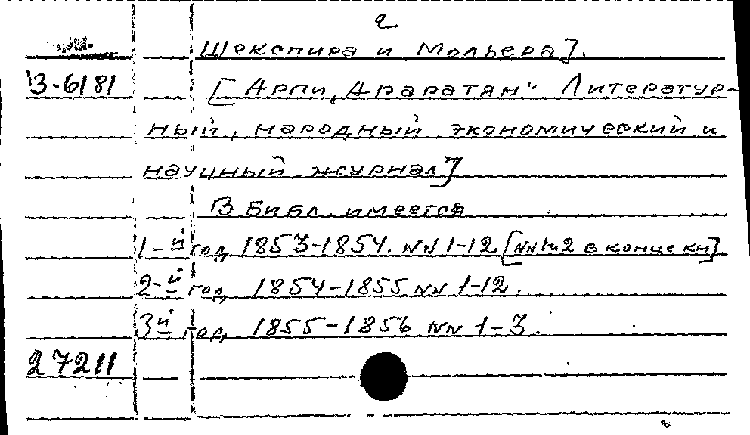 2
Шекспира и Мольера].
В-6181 [Арпи „Араратян“ Литератур-
ный, народный экономический и
научный журнал]
В библ. имеется
1-й год 1853-1854. NN 1-12 [NN 1и2 в конце кн]
2-й год 1854-1855 NN 1-12.
3й год 1855-1856 NN 1-3.
27211